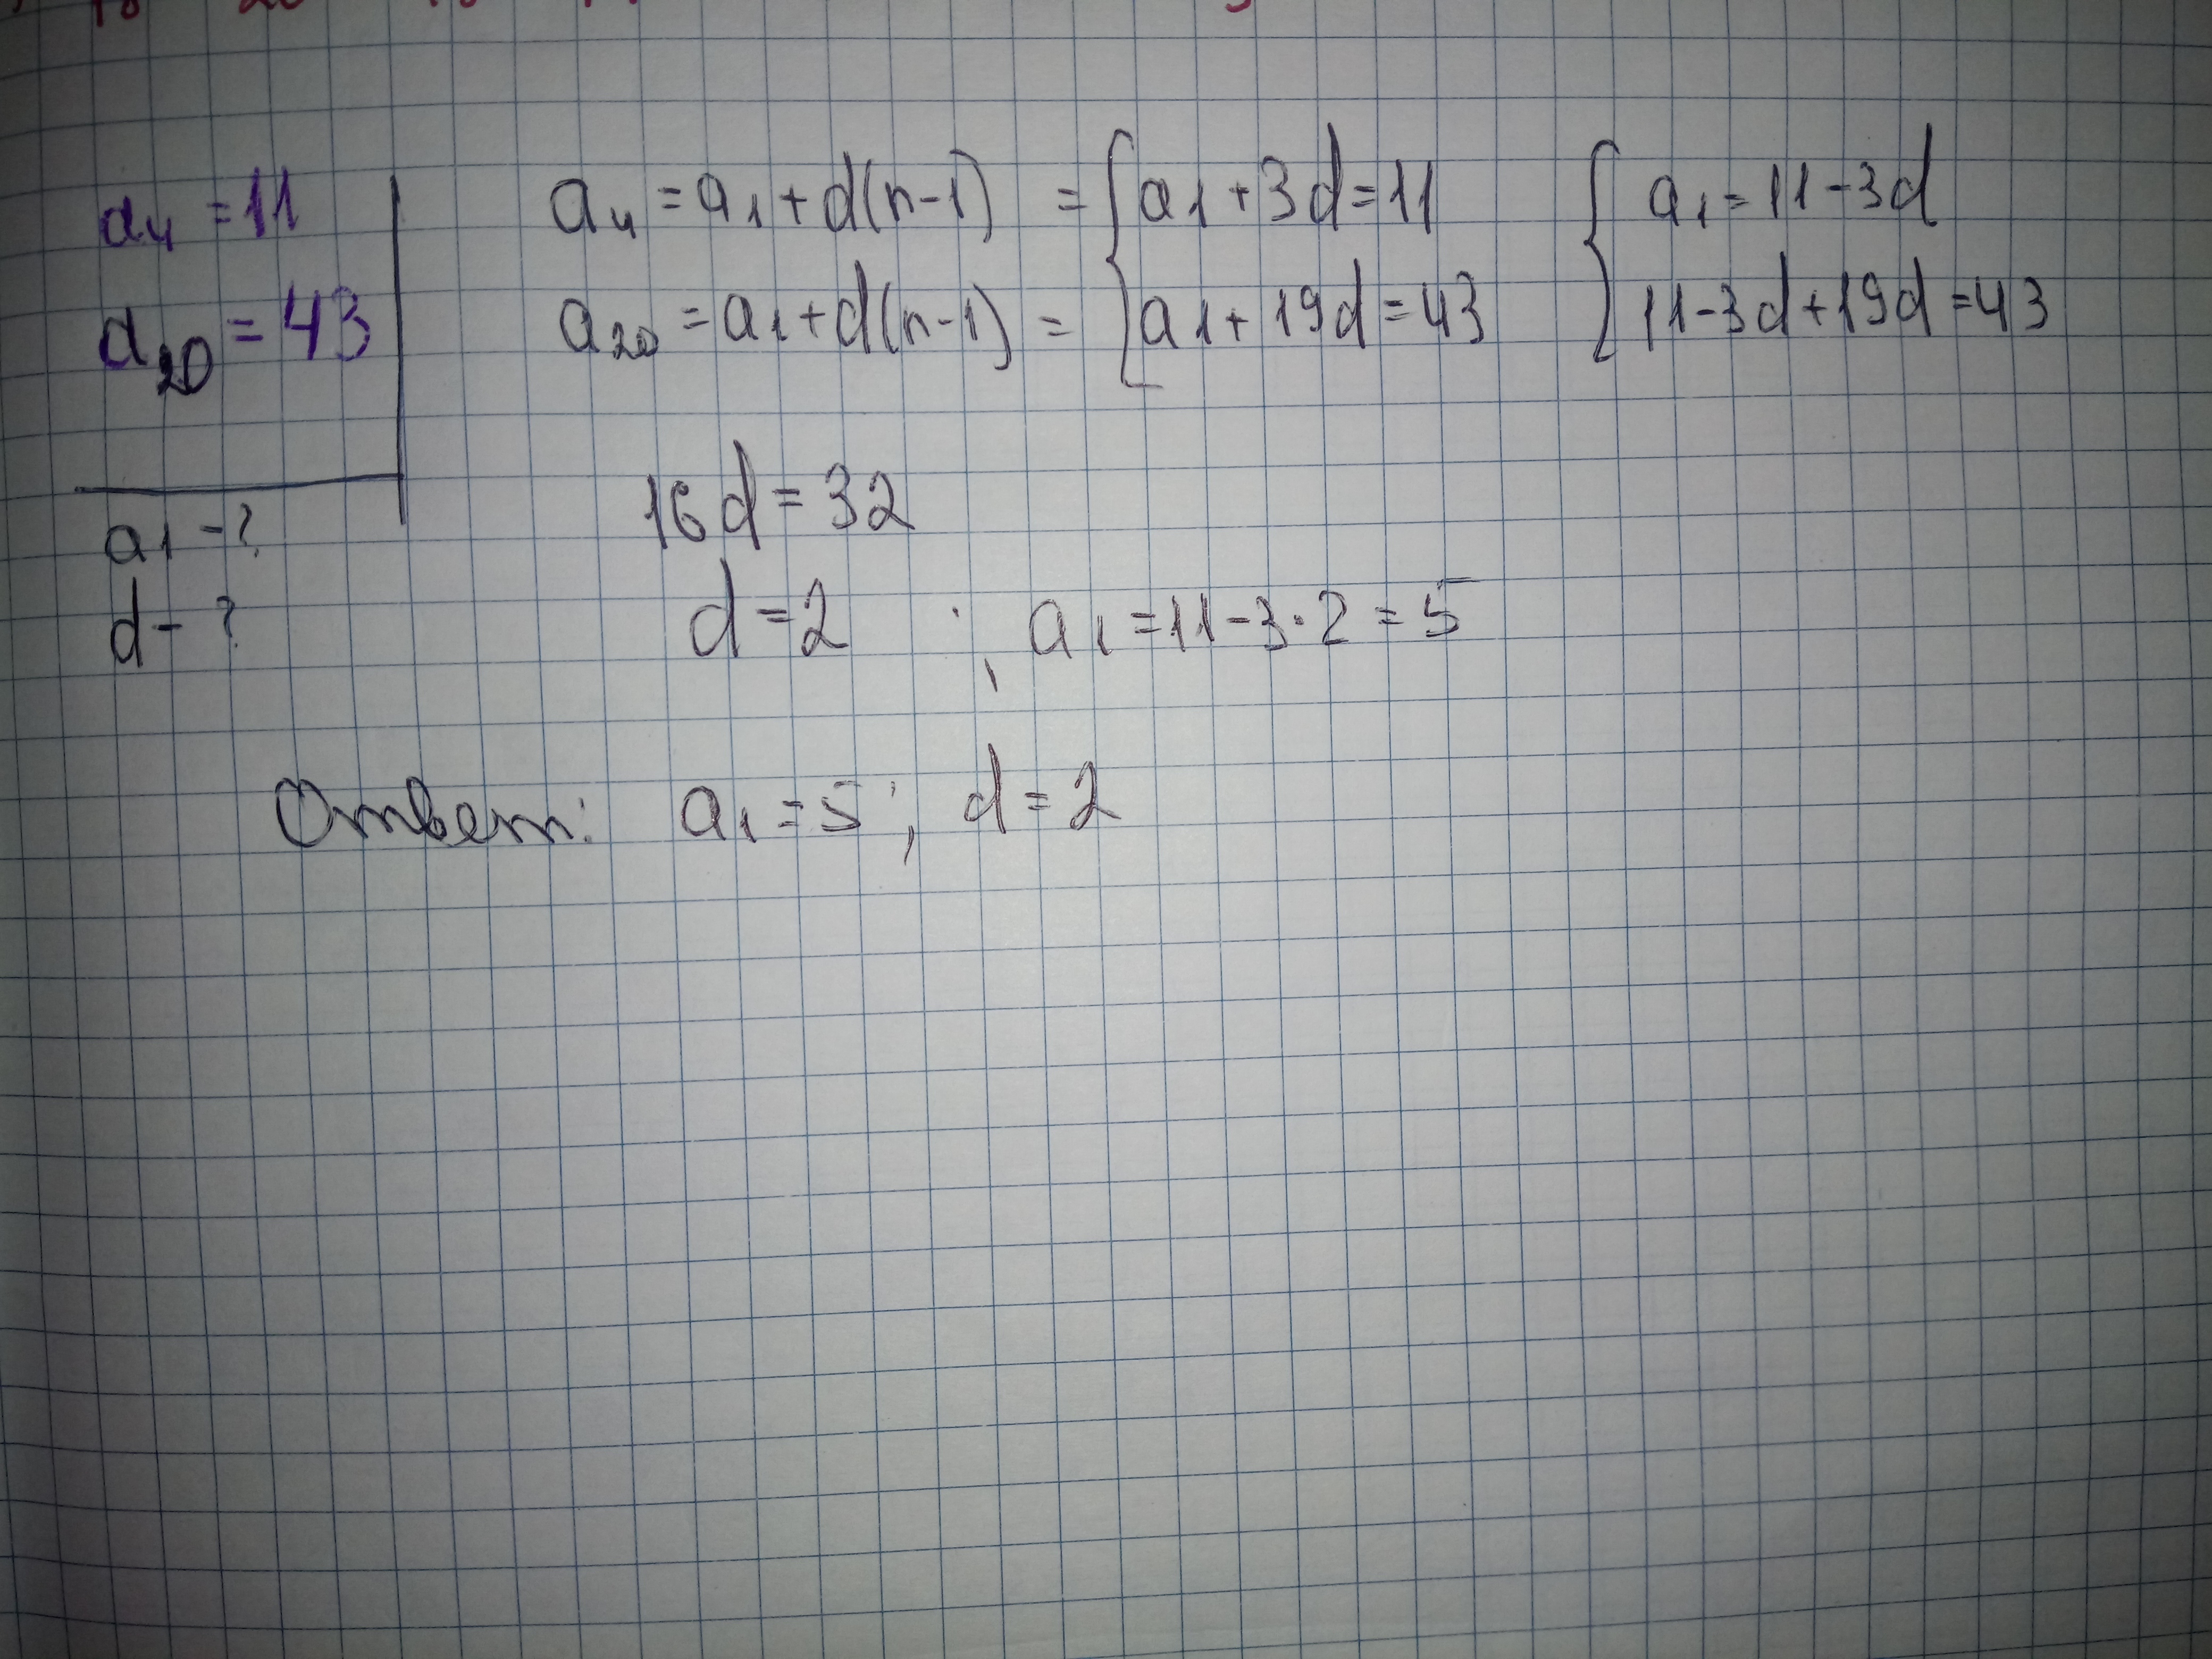 a₄ = 11
a₂₀ = 43
a₁ - ?
d - ?
a₄ = a₁ + d(n-1) = { a₁ + 3d = 11 { a₁ = 11 - 3d
a₂₀ = a₁ + d(n-1) = { a₁ + 19d = 43 { 11 - 3d + 19d = 43
16d = 32
d = 2 ; a₁ = 11 - 3·2 = 5
Ответ: a₁ = 5 ; d = 2